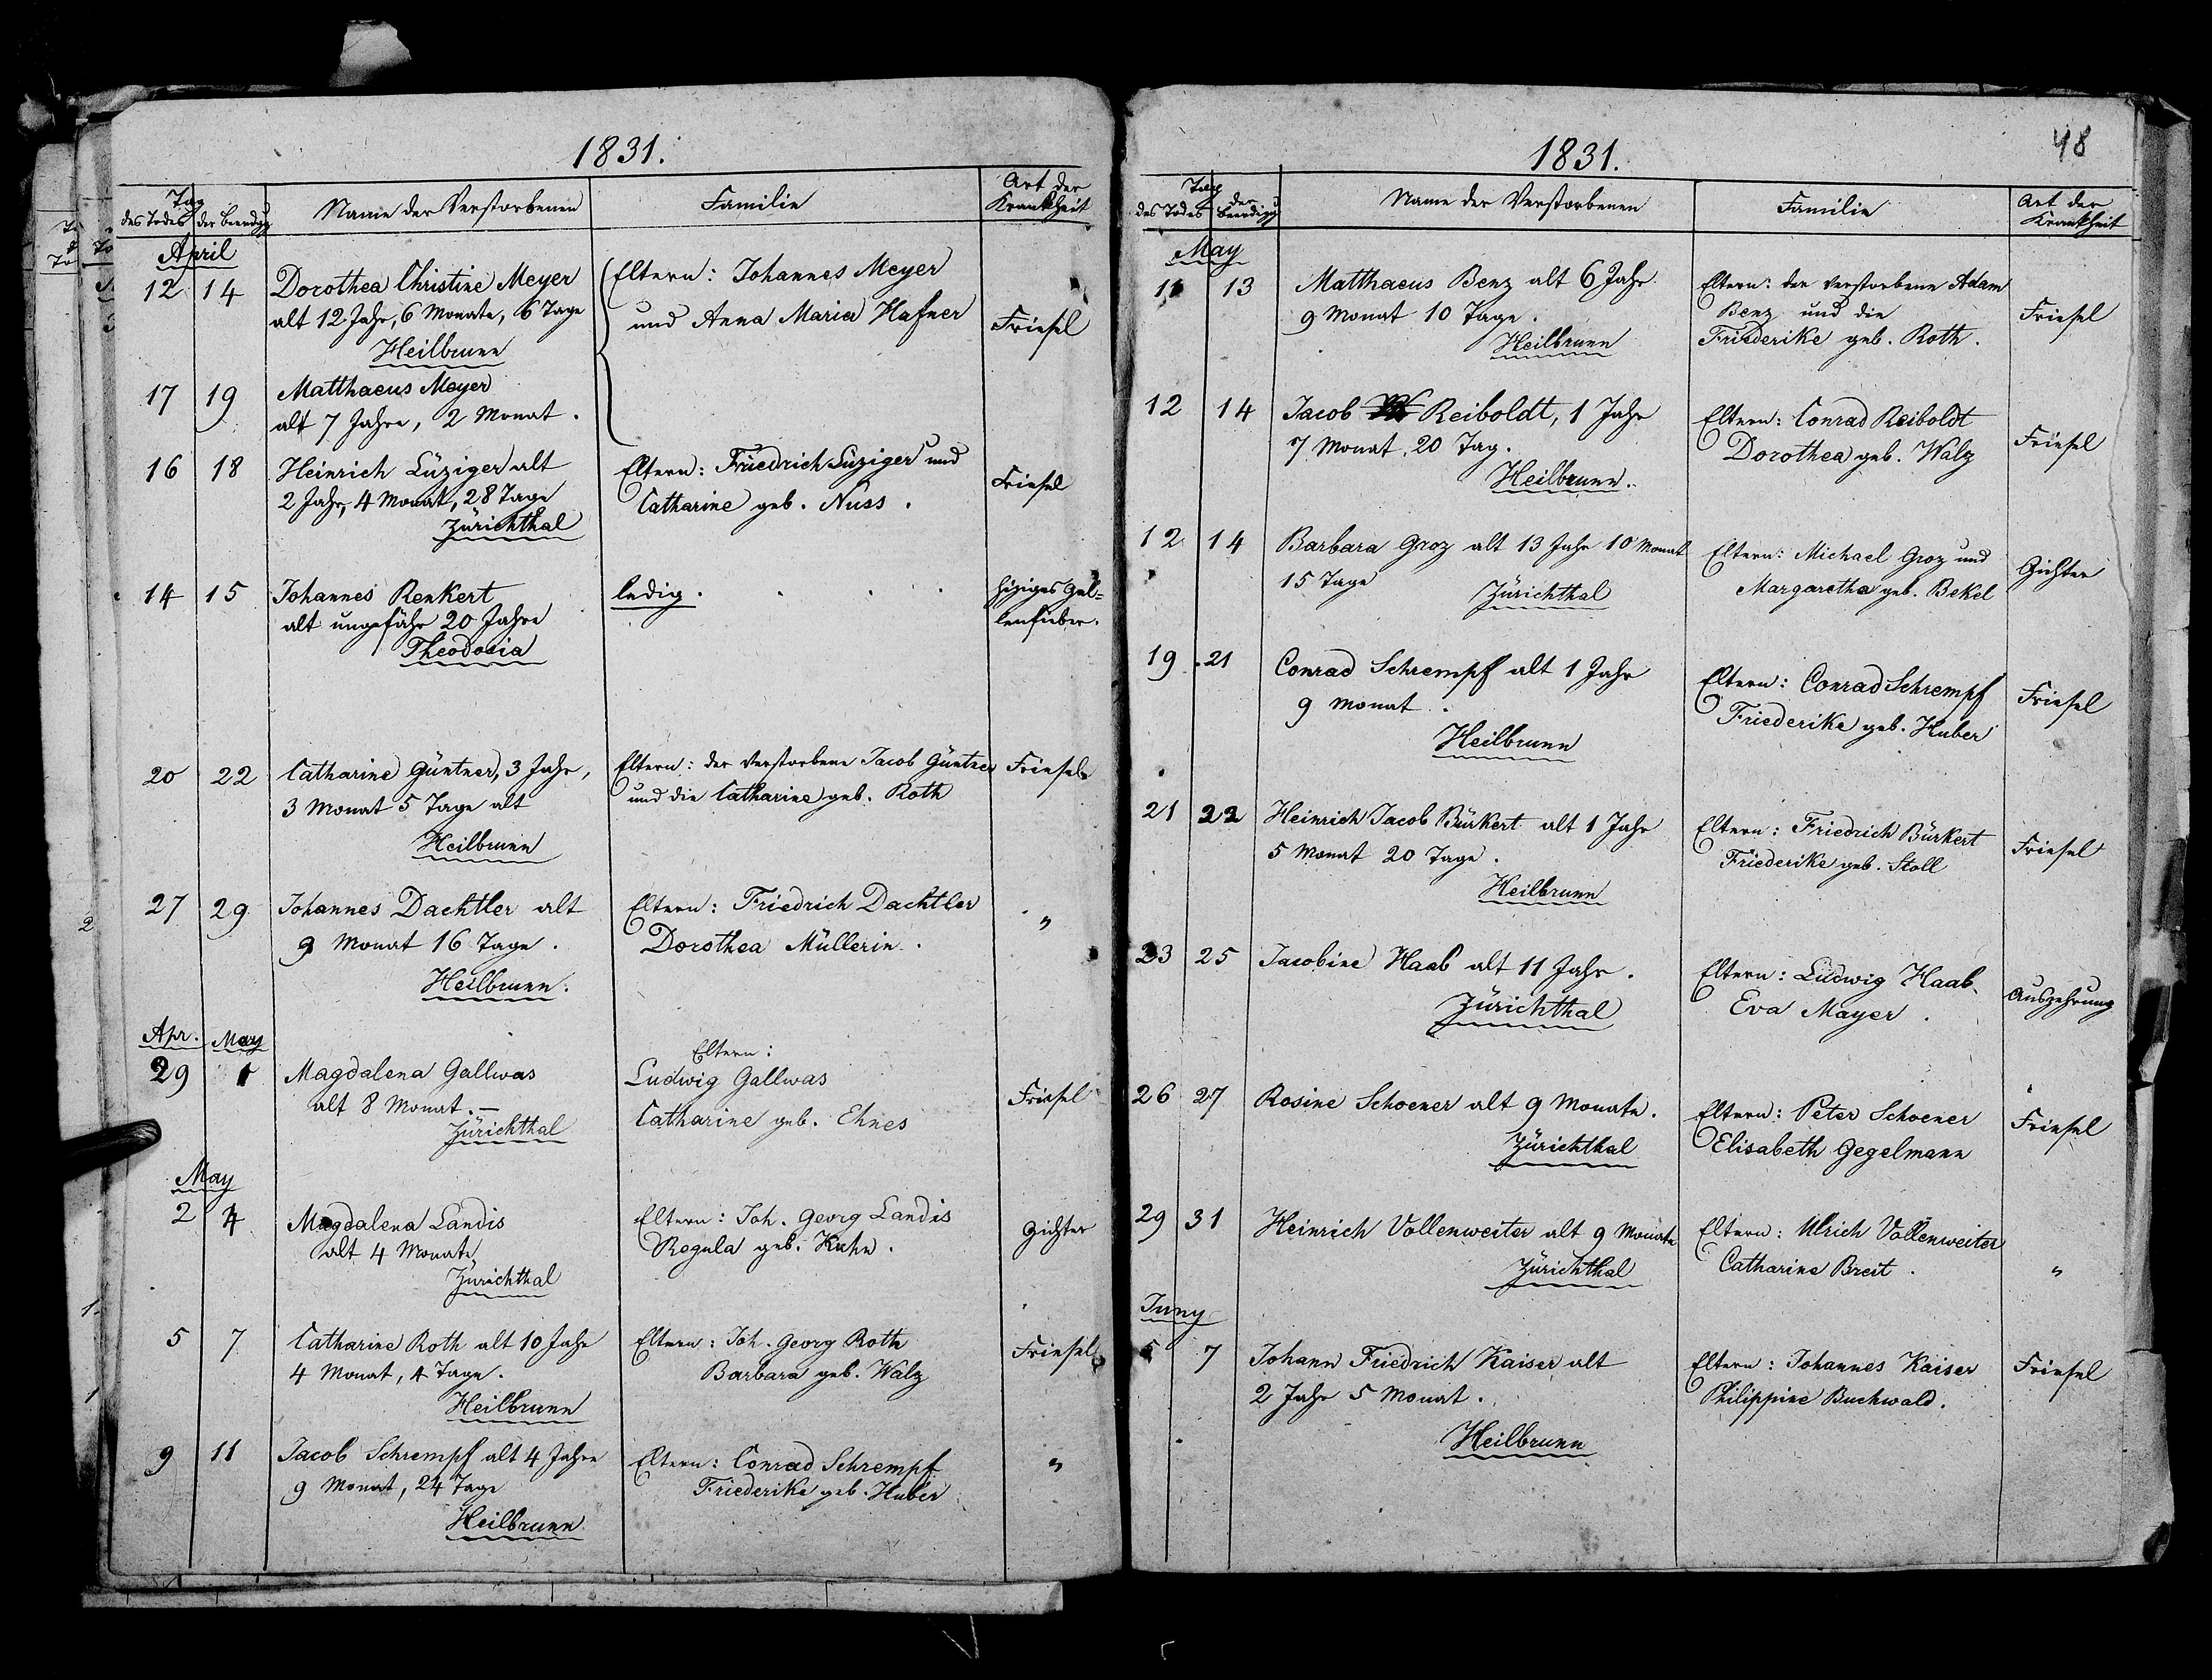 1831.
Tag
des Todes der Beerdigg
Name der Verstorbenen
Familie
Art der
Krankheit
April
12 14 Dorothea Christine Meyer
alt 12 Jahr, 6 Monate, 6 Tage
Heilbrunn
Eltern: Johannes Meyer
und Anna Maria Hafner
Friesel
17 19 Matthaeus Meyer
alt 7 Jahre, 2 Monat.
16 18 Heinrich Lüziger alt
2 Jahr, 4 Monat, 28 Tage
Zürichthal
Eltern: Friedrich Lüziger und
Catharine geb. Nuss.
Friesel
14 15 Johannes Renkert
alt ungefähr 20 Jahre
Theodosia
ledig.
hiziges Gal=
lenfieber.
20 22 Catharine Güntner, 3 Jahr,
3 Monat 5 Tage alt
Heilbrunn
Eltern: der verstorbene Jacob Güntner
und die Catharine geb. Roth
Friesel
27 29 Johannes Dachtler alt
9 Monat 16 Tage.
Heilbrunn.
Eltern: Friedrich Dachtler
Dorothea Müllerin.
"
Apr. May
29 1 Magdalena Gallwas
alt 8 Monat. —
Zürichthal
Eltern:
Ludwig Gallwas
Catharine geb. Ehnes
Friesel
May
2 4 Magdalena Landis
alt 4 Monate
Zürichthal
Eltern: Joh. Georg Landis
Regula geb. Kuhn.
Gichter
5 7 Catharine Roth alt 10 Jahr
4 Monat, 4 Tage.
Heilbrunn
Eltern: Joh. Georg Roth
Barbara geb. Walz
Friesel
9 11 Jacob Schrempf alt 4 Jahre
9 Monat, 24 Tage
Heilbrunn
Eltern: Conrad Schrempf
Friederike geb. Huber
"
48
1831.
Tag
des Todes der Beerdigg
Name der Verstorbenen
Familie
Art der
Krankheit
May
11 13 Matthaeus Benz alt 6 Jahr
9 Monat 10 Tage.
Heilbrunn
Eltern: der verstorbene Adam
Benz und die
Friederike geb. Roth.
Friesel
12 14 Jacob Reiboldt, 1 Jahr
7 Monat, 20 Tag.
Heilbrunn.
Eltern: Conrad Reiboldt
Dorothea geb. Walz
Friesel
12 14 Barbara Groz alt 13 Jahr 10 Monat
15 Tage
Zürichthal
Eltern: Michael Groz und
Margaretha geb. Bekel
Gichter
19 21 Conrad Schrempf alt 1 Jahr
9 Monat.
Heilbrunn
Eltern: Conrad Schrempf
Friederike geb. Huber
Friesel
21 22 Heinrich Jacob Bürkert alt 1 Jahr
5 Monat 20 Tage.
Heilbrunn
Eltern: Friedrich Bürkert
Friederike geb. Stoll
Friesel
23 25 Jacobine Haab alt 11 Jahr.
Zürichthal
Eltern: Ludwig Haab
Eva Mayer.
Auszehrung
26 27 Rosine Schoener alt 9 Monate.
Zürichthal
Eltern: Peter Schoener
Elisabeth Gegelmann
Friesel
29 31 Heinrich Vollenweiter alt 9 Monate
Zürichthal
Eltern: Ulrich Vollenweiter
Catharine Breit.
"
Juny
5 7 Johann Friedrich Kaiser alt
2 Jahr 5 Monat.
Heilbrunn
Eltern: Johannes Kaiser
Philippine Buchwald.
Friesel